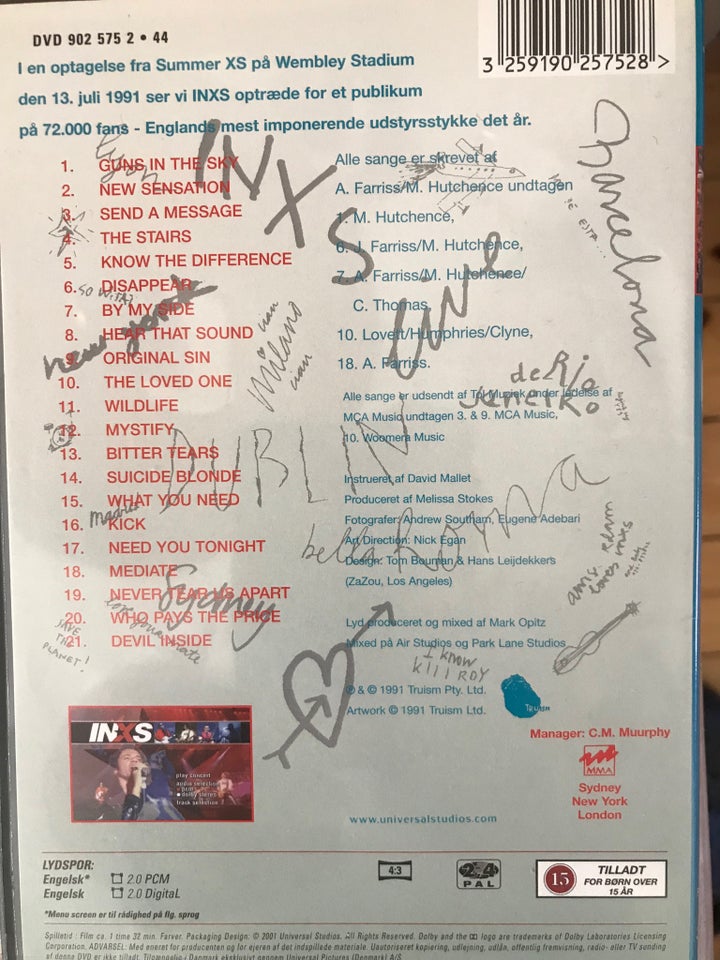 DVD 902 575 2 • 44
3 259190 257528 >
I en optagelse fra Summer XS på Wembley Stadium
den 13. juli 1991 ser vi INXS optræde for et publikum
på 72.000 fans - Englands mest imponerende udstyrsstykke det år.
1. GUNS IN THE SKY
2. NEW SENSATION
3. SEND A MESSAGE
4. THE STAIRS
5. KNOW THE DIFFERENCE
6. DISAPPEAR
7. BY MY SIDE
8. HEAR THAT SOUND
9. ORIGINAL SIN
10. THE LOVED ONE
11. WILDLIFE
12. MYSTIFY
13. BITTER TEARS
14. SUICIDE BLONDE
15. WHAT YOU NEED
16. KICK
17. NEED YOU TONIGHT
18. MEDIATE
19. NEVER TEAR US APART
20. WHO PAYS THE PRICE
21. DEVIL INSIDE
Alle sange er skrevet af
A. Farriss/M. Hutchence undtagen
1. M. Hutchence,
6. J. Farriss/M. Hutchence,
7. A. Farriss/M. Hutchence/
C. Thomas,
10. Lovett/Humphries/Clyne,
18. A. Farriss.
Alle sange er udsendt af Tol Muziek under ledelse af
MCA Music undtagen 3. & 9. MCA Music,
10. Woomera Music
Instrueret af David Mallet
Produceret af Melissa Stokes
Fotografer Andrew Southam, Eugene Adebari
Art Direction: Nick Egan
Design: Tom Bouman & Hans Leijdekkers
(ZaZou, Los Angeles)
Lyd produceret og mixed af Mark Opitz
Mixed på Air Studios og Park Lane Studios
℗ & © 1991 Truism Pty. Ltd.
Artwork © 1991 Truism Ltd.
INXS
live
Barcelona
new york
milano
de Rio
Janeiro
DUBLIN
bella Roma
Sydney
SAVE
THE
PLANET!
I know
killroy
TRUISM
Manager: C.M. Muurphy
MMA
Sydney
New York
London
INXS
play concert
audio selection
pcm
dolby stereo
track selection
www.universalstudios.com
LYDSPOR:
Engelsk* 2.0 PCM
Engelsk 2.0 DigitaL
*Menu screen er til rådighed på flg. sprog
4:3
2 4
PAL
15
TILLADT
FOR BØRN OVER
15 ÅR
Spilletid : Film ca. 1 time 32 min. Farver. Packaging Design: © 2001 Universal Studios. All Rights Reserved. Dolby and the logo are trademarks of Dolby Laboratories Licensing
Corporation. ADVARSEL: Med eneret for producenten og for ejeren af det indspillede materiale. Uautoriseret kopiering, udlejning, udlån, offentlig fremvisning, radio- eller TV sending
af denne DVD er ikke tilladt. Tilgængelig i Danmark eksklusivt gennem Universal Pictures (Denmark) A/S